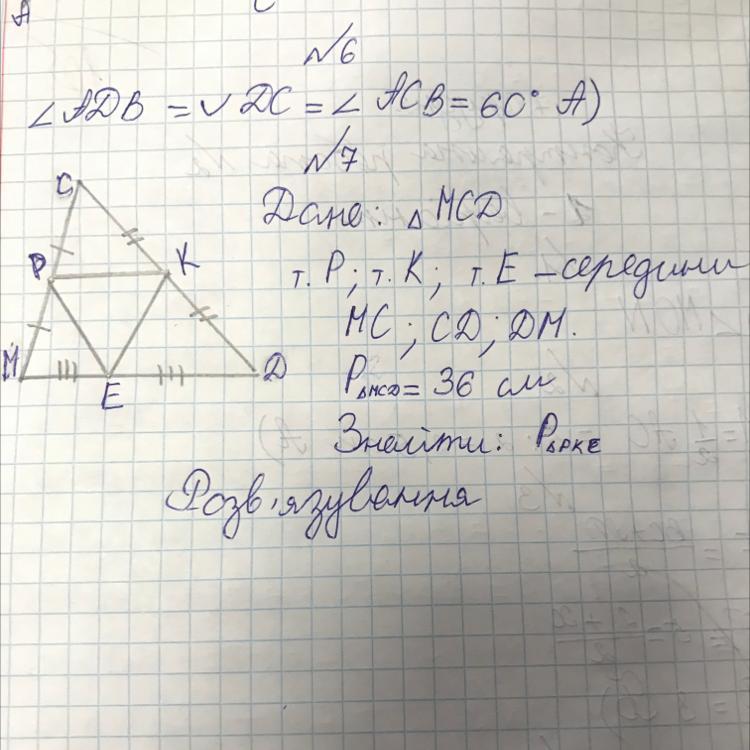 А
№6
∠ADB = ∪DC = ∠ACB = 60° А)
№7
C
P
K
M
E
D
Дано: △MCD
т. P; т. K; т. E – середини
MC; CD; DM.
P△MCD = 36 см
Знайти: P△PKE
Розв'язування